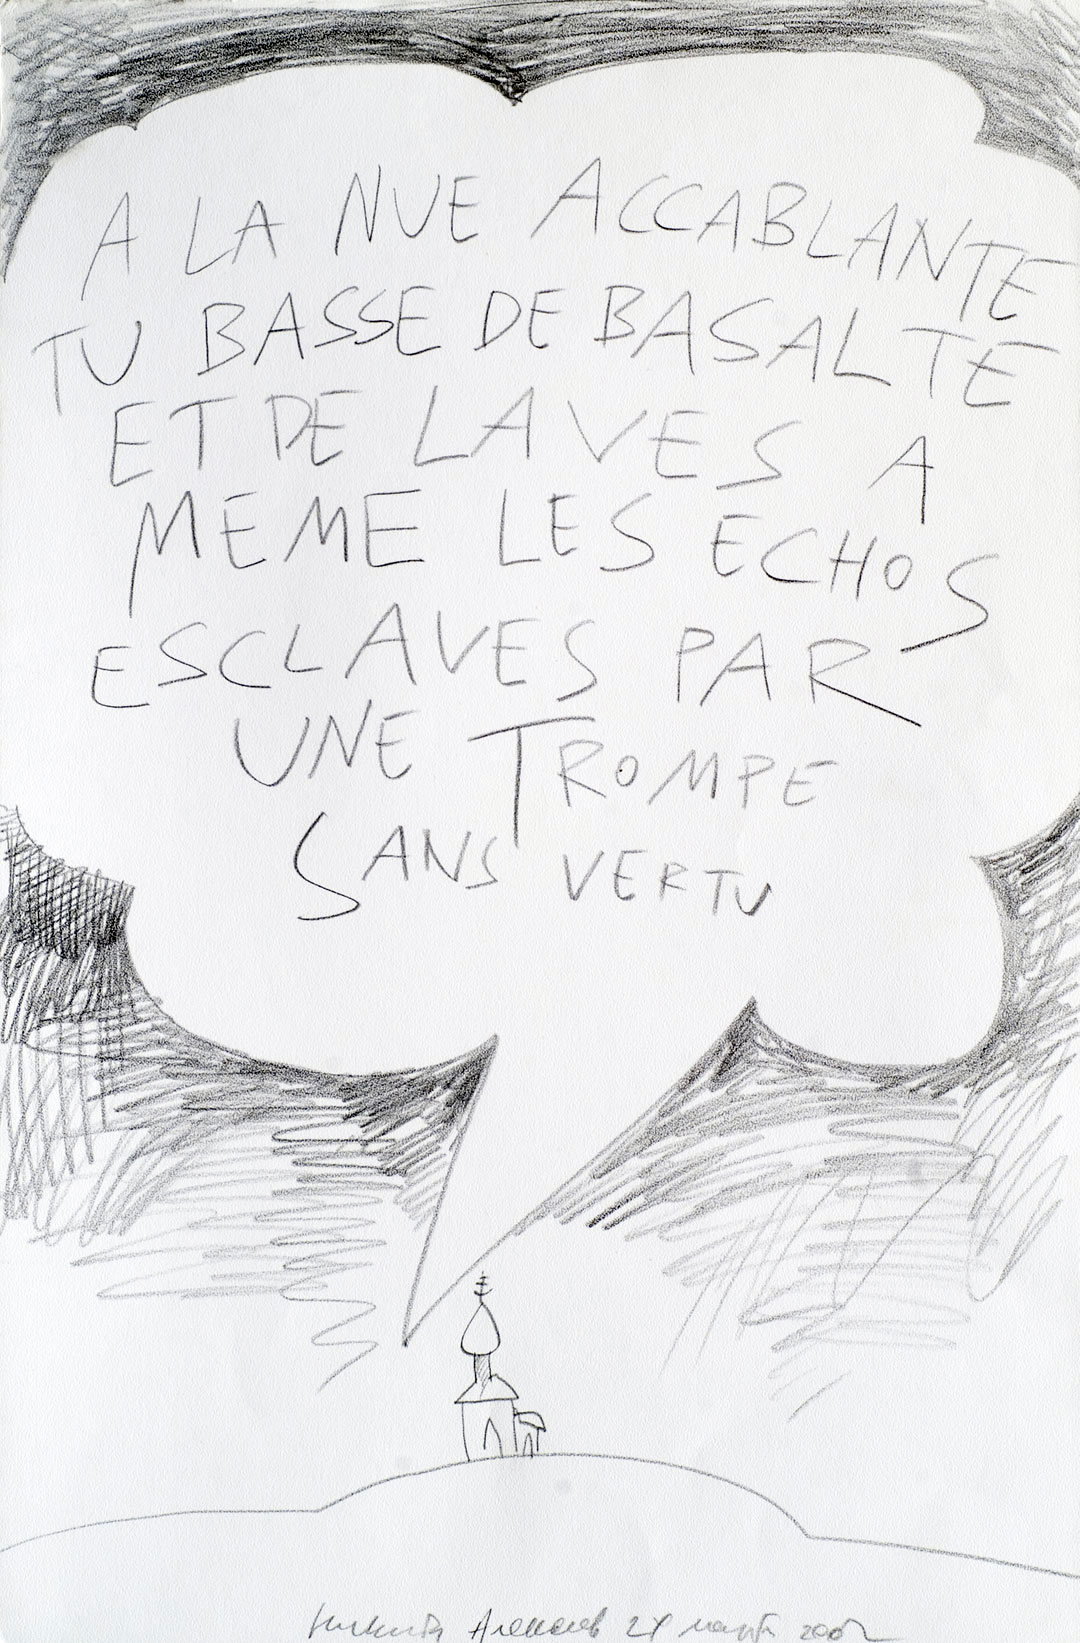 A LA NUE ACCABLANTE
TU BASSE DE BASALTE
ET DE LAVES A
MEME LES ECHOS
ESCLAVES PAR
UNE TROMPE
SANS VERTU
Никита Алексеев 24 марта 2002